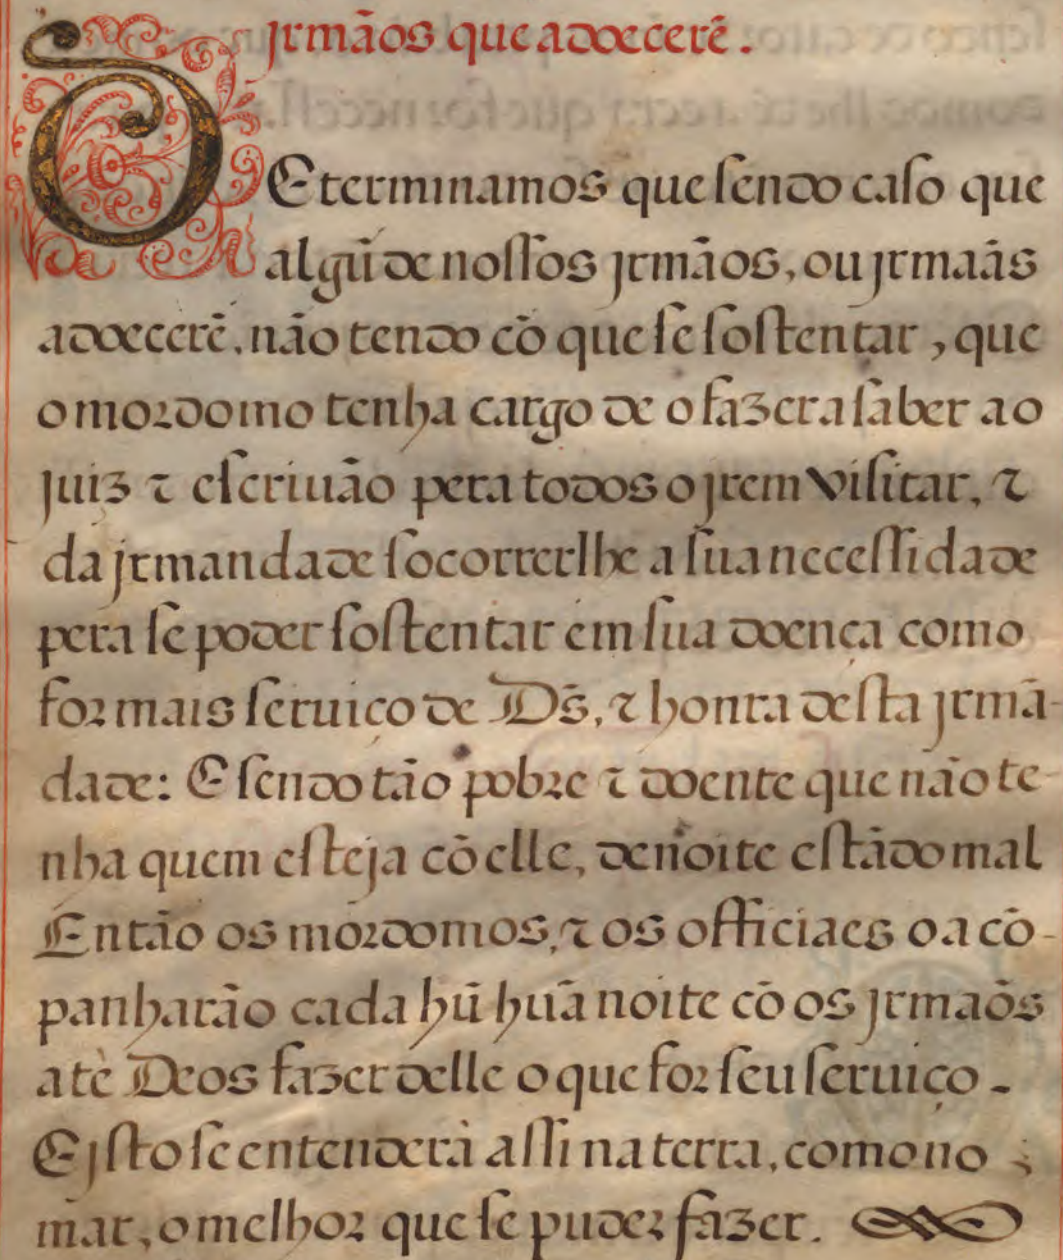 jrmãos que adoecerẽ.
DEterminamos que sendo caso que
algũ de nossos jrmãos, ou jrmaãs
adoecerẽ, não tendo cõ que se sostentar, que
o mordomo tenha cargo de o fazer a saber ao
juiz & escriuão pera todos o jrem visitar, &
da jrmandade socorrerlhe a sua necessidade
pera se poder sostentar em sua doença como
for mais seruiço de Ds̃, & honra desta jrmã-
dade: E sendo tão pobre & doente que não te-
nha quem esteja cõ elle, de noite estãdo mal
Então os mordomos, & os officiaes o acõ-
panharão cada hũ huã noite cõ os jrmaõs
atè Deos fazer delle o que for seu seruiço -
E jsto se entenderà assi na terra, como no
mar, o melhor que se puder fazer.